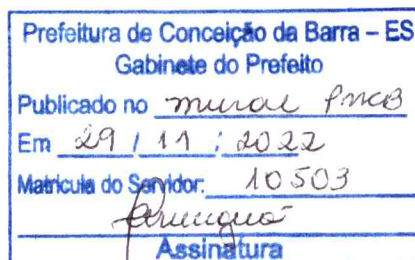 Prefeitura de Conceição da Barra – ES
Gabinete do Prefeito
Publicado no mural PMCB
Em 29 / 11 / 2022
Matrícula do Servidor: 10503
Assinatura